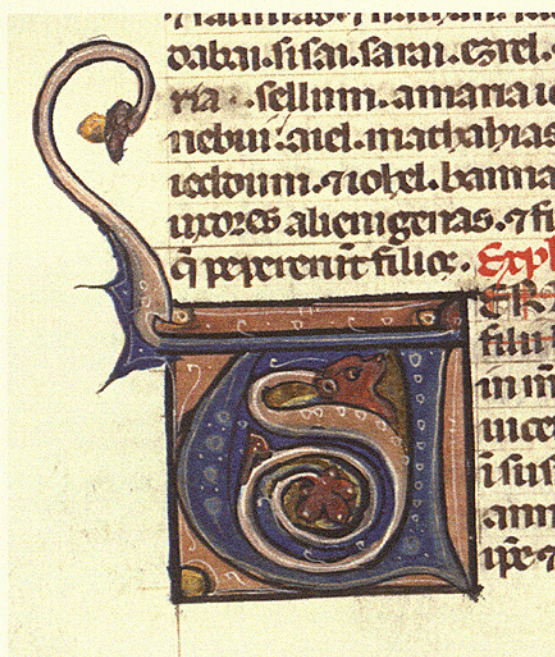 dabai.sisai.sarai.ezrel.
ria. .sellum.amaria
nebui.aiel.mathathias
ieddum.⁊iohel.banna
uxores alienigenas.⁊
q̄ pepererūt filios. Expl
filii
in m
uice
ī sus
ann
ip̄e ⁊